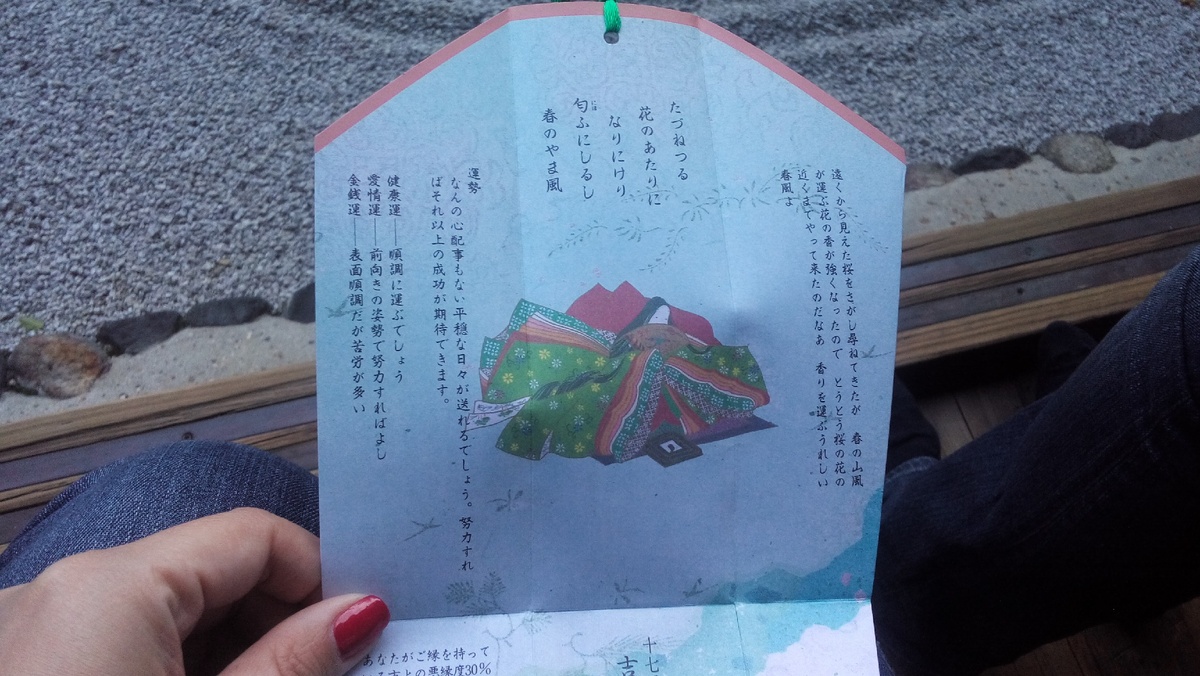 遠くから見えた桜をさがし尋ねてきたが　春の山風
が運ぶ花の香が強くなったので　とうとう桜の花の
近くまでやって来たのだなあ　香りを運ぶうれしい
春風よ
たづねつる
花のあたりに
なりにけり
匂ふにしるし
にほ
春のやま風
運勢
なんの心配事もない平穏な日々が送れるでしょう。努力すれ
ばそれ以上の成功が期待できます。
健康運――順調に運ぶでしょう
愛情運――前向きの姿勢で努力すればよし
金銭運――表面順調だが苦労が多い
十七
吉
あなたがご縁を持って
との悪縁度30%